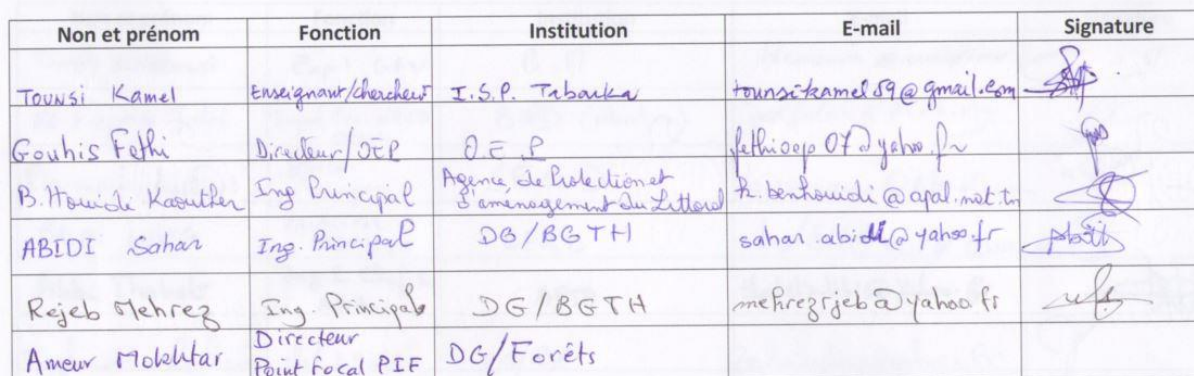 Non et prénom Fonction Institution E-mail Signature
Tounsi Kamel Enseignant/chercheur I.S.P. Tabarka tounsikamel59@gmail.com
Gouhis Fethi Directeur/OEP O.E.P fethioep07@yahoo.fr
B. Houidi Kaouther Ing Principal Agence de Protection et
d'amenagement du Littoral k.benhouidi@apal.nat.tn
ABIDI Sahar Ing. Principal DG/BGTH sahar.abidi@yahoo.fr
Rejeb Mehrez Ing. Principal DG/BGTH mehrezrjeb@yahoo.fr
Ameur Mokhtar Directeur
Point Focal PIF DG/Forêts